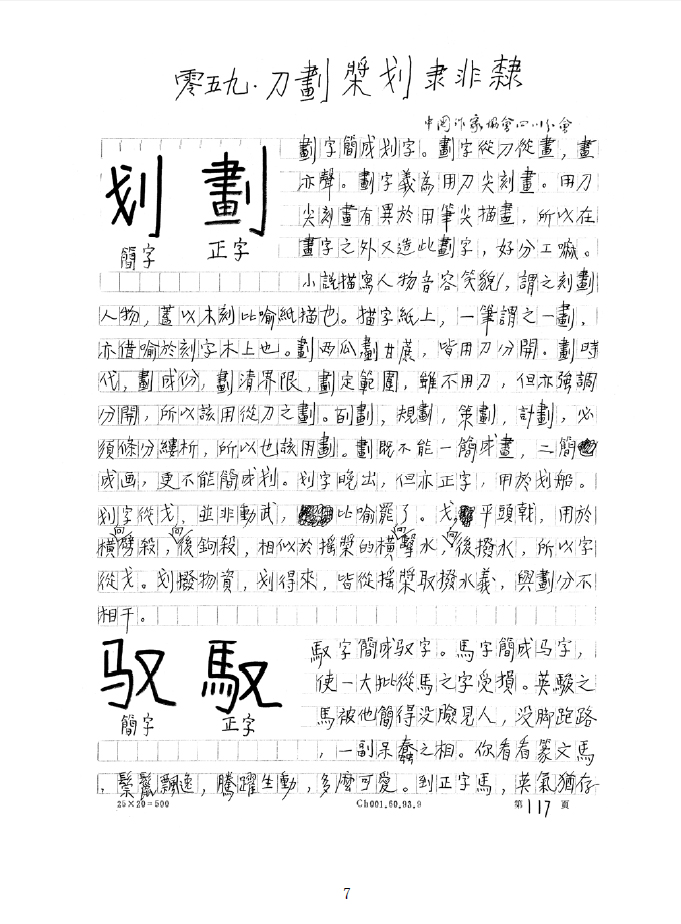 零五九.刀劃槳划隶非隸
中国作家协會四川分會
划 劃
簡字 正字
劃字簡成划字。劃字從刀從畫，畫
亦聲。劃字義為用刀尖刻畫。用刀
尖刻畫有異於用筆尖描畫，所以在
畫字之外又造此劃字，好分工嘛。
小説描寫人物音容笑貌，謂之刻劃
人物，蓋以木刻比喻紙描也。描字紙上，一筆謂之一劃，
亦借喻於刻字木上也。劃西瓜劃甘蔗，皆用刀分開。劃時
代，劃成份，劃清界限，劃定範圍，雖不用刀，但亦強調
分開，所以該用從刀之劃。劃，規劃，策劃，計劃，必
須條分縷析，所以也該用劃。劃既不能一簡成畫，二簡
成画，更不能簡成划。划字晚出，但亦正字，用於划船。
划字從戈，並非動武，比喻罷了。戈平頭戟，用於
橫向劈殺，向後鉤殺，相似於搖槳的橫向擊水，向後撥水，所以字
從戈。划撥物資，划得來，皆從搖槳取撥水義，與劃分不
相干。
驭 馭
簡字 正字
馭字簡成驭字。馬字簡成马字，
使一大批從馬之字受損。英駿之
馬被他簡得没臉見人，没脚跑路
，一副呆蠢之相。你看看篆文馬
，鬃鬣飄逸，騰躍生動，多麽可愛。到正字馬，英氣猶存
25×20=500 Ch001.60.93.9 第117頁
7